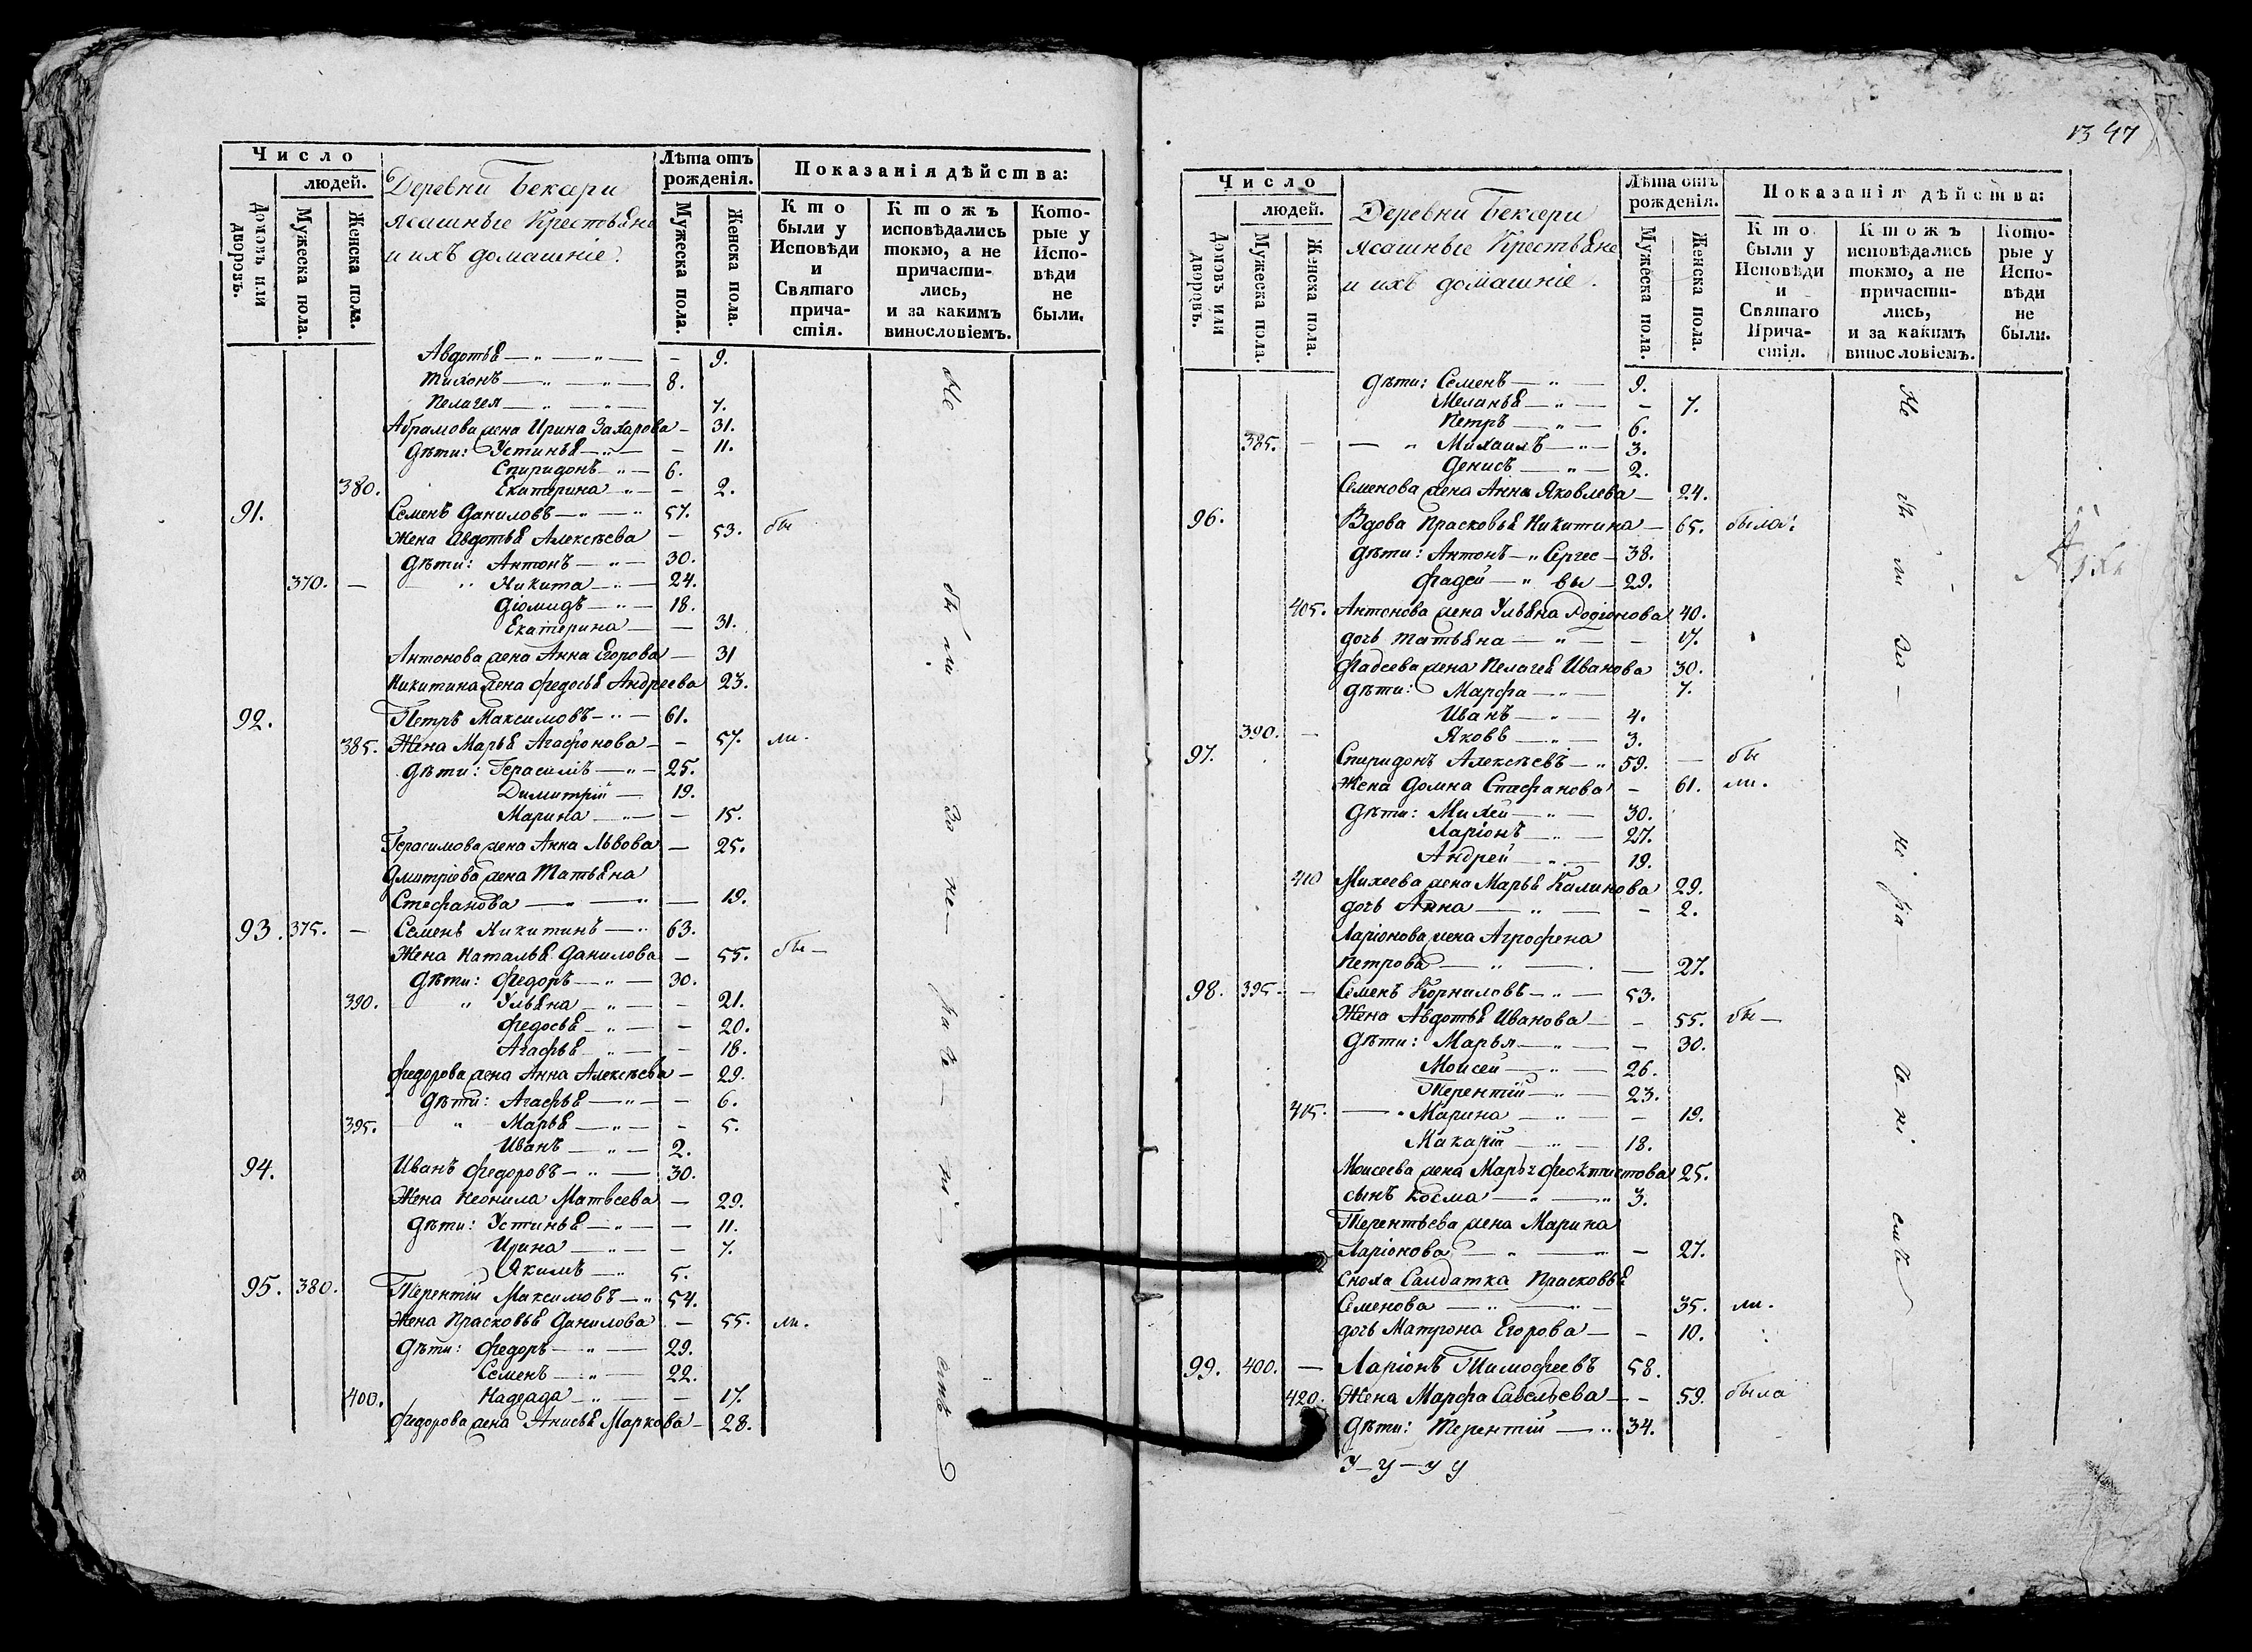 Число
людей.
Домовъ или дворовъ.
Мужеска пола.
Женска пола.
Деревни Бекери
ясашные Крестьяне
и ихъ домашніе.
Лѣта отъ рожденія.
Мужеска пола.
Женска пола.
Показанія дѣйства:
Кто были у Исповѣди и Святаго причастія.
Ктожъ исповѣдались токмо, а не причастились, и за какимъ винословіемъ.
Которые у Исповѣди не были.
Авдотья — 9.
Тихонъ 8.
Пелагея 7.
Абрамова жена Ирина Захарова — 31.
Дѣти: Устинья — 11.
Спиридонъ 6.
380. Екатерина — 2.
91. Семенъ Даниловъ 57.
Жена Авдотья Алексѣева — 53. бы
Дѣти: Антонъ 30.
370. — Никита 24.
Діомидъ 18.
Екатерина — 31.
Антонова жена Анна Егорова — 31
Никитина жена Федосья Андреева 23.
92. Петръ Максимовъ 61.
385. Жена Марья Агафонова — 57. ли.
Дѣти: Герасимъ 25.
Димитрій 19.
Марина — 15.
Герасимова жена Анна Львова — 25.
Дмитріева жена Татьяна
Стефанова — 19.
93. 375. — Семенъ Никитинъ 63.
Жена Наталья Данилова — 55. бы—
Дѣти: Федоръ 30.
390. Ульяна — 21.
Федосья — 20.
Агафья — 18.
Федорова жена Анна Алексѣева — 29.
Дѣти: Агафья — 6.
395. Марья — 5.
Иванъ 2.
94. Иванъ Федоровъ 30.
Жена Неонила Матвеева — 29.
Дѣти: Устинья — 11.
Ирина — 7.
Якимъ 5.
95. 380. Терентій Максимовъ 54.
Жена Прасковья Данилова — 55. ли.
Дѣти: Федоръ 29.
Семенъ 22.
400. Надежда — 17.
Федорова жена Анисья Маркова — 28.
47
Число
людей.
Домовъ или дворовъ.
Мужеска пола.
Женска пола.
Деревни Бекери
ясашные Крестьяне
и ихъ домашніе.
Лѣта отъ рожденія.
Мужеска пола.
Женска пола.
Показанія дѣйства:
Кто были у Исповѣди и Святаго Причастія.
Ктожъ исповѣдались токмо, а не причастились, и за какимъ винословіемъ.
Которые у Исповѣди не были.
Дѣти: Семенъ 9.
Меланья — 7.
Петръ 6.
385. — Михаилъ 3.
Денисъ 2.
Семенова жена Анна Яковлева — 24.
96. Вдова Прасковья Никитина — 65. была.
Дѣти: Антонъ Сергее 38.
Фадей вы 29.
405. Антонова жена Ульяна Родіонова 40.
дочь Татьяна — 17.
Фадеева жена Пелагея Иванова 30.
Дѣти: Марфа 7.
Иванъ 4.
390. — Яковъ 3.
97. Спиридонъ Алексѣевъ 59. — бы
Жена Домна Стефанова — 61. ли.
Дѣти: Михей 30.
Ларіонъ 27.
Андрей 19.
410 Михеева жена Марья Калинова 29.
дочь Анна — 2.
Ларіонова жена Агрофена
Петрова — 27.
98. 395. — Семенъ Корниловъ 53.
Жена Авдотья Иванова — 55. бы—
Дѣти: Марья — 30.
Моисей 26.
Терентій 23.
415. — Марина — 19.
Макарій 18.
Моисеева жена Марья Феоктистова 25.
сынъ Косма 3.
Терентьева жена Марина
Ларіонова — 27.
Сноха Салдатка Прасковья
Семенова 35. ли.
дочь Матрона Егорова — 10.
99. 400. — Ларіонъ Тимофеевъ 58.
420. Жена Марфа Савельева — 59. была
Дѣти: Терентій 34.